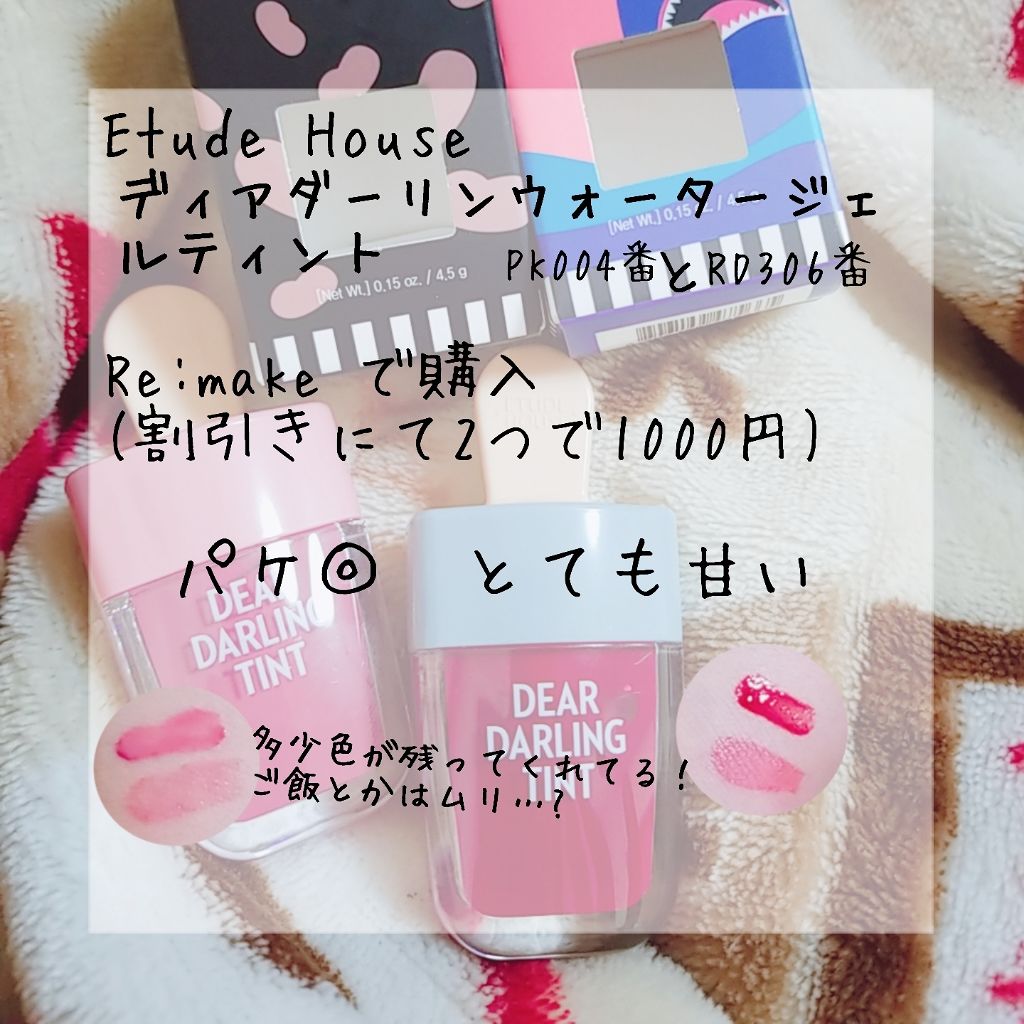 Etude House
ディアダーリンウォータージェ
ルティント
PK004番とRD306番
[Net Wt.] 0.15 oz. / 4.5 g
[Net Wt.] 0.15 oz. / 4.5 g
Re:make で購入
(割引きにて2つで1000円)
ETUDE
パケ◎ とても甘い
DEAR
DARLING
TINT
DEAR
DARLING
TINT
多少色が残ってくれてる!
ご飯とかはムリ…?